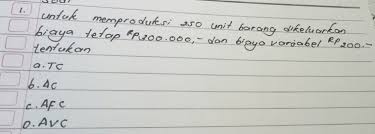 1. untuk memproduksi 250 unit barang dikeluarkan
biaya tetap Rp 200.000,- dan biaya variabel Rp 200.-
tentukan
a. TC
b. AC
c. AFC
D. AVC